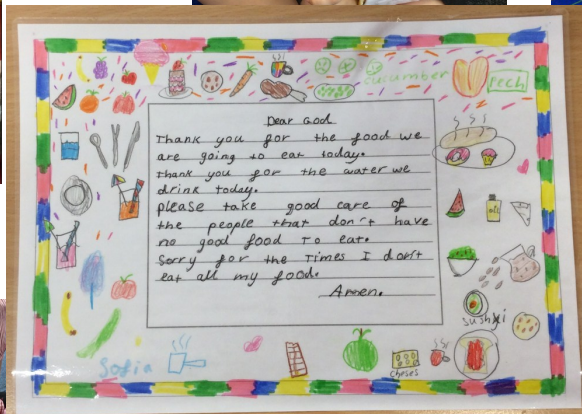 cucumber
Pech
Dear God
Thank you for the food we
are going to eat today.
thank you for the water we
drink today.
please take good care of
the people that don't have
no good food to eat.
Sorry for the times I don't
eat all my food.
Amen.
oil
sushi
Sofia
cheses